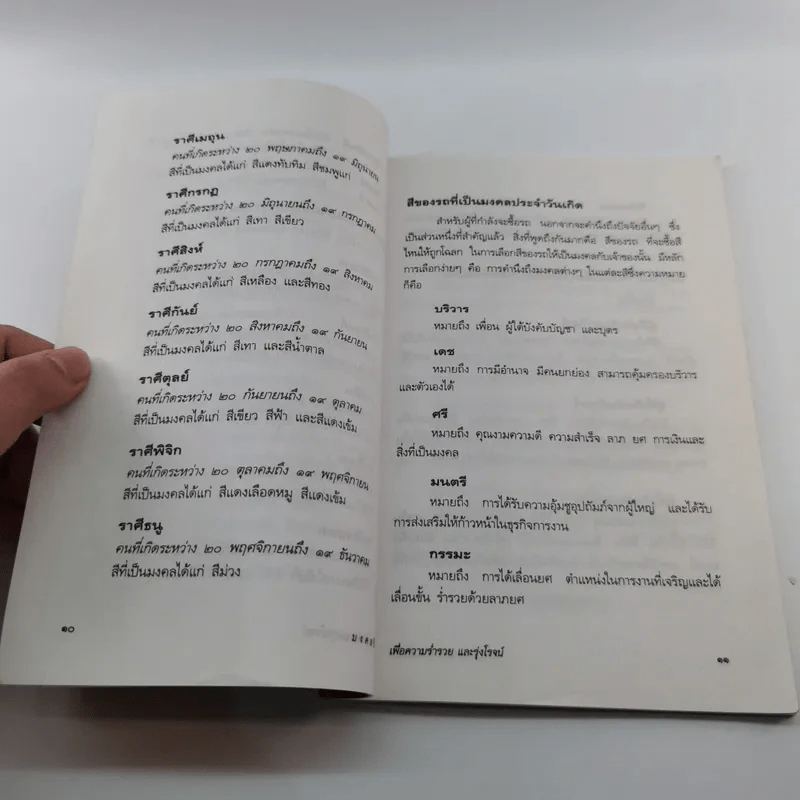 ราศีเมถุน
คนที่เกิดระหว่าง ๒๐ พฤษภาคมถึง ๑๙ มิถุนายน
สีที่เป็นมงคลได้แก่ สีแดงทับทิม สีชมพูแก่
ราศีกรกฎ
คนที่เกิดระหว่าง ๒๐ มิถุนายนถึง ๑๙ กรกฎาคม
สีที่เป็นมงคลได้แก่ สีเทา สีเขียว
ราศีสิงห์
คนที่เกิดระหว่าง ๒๐ กรกฎาคมถึง ๑๙ สิงหาคม
สีที่เป็นมงคลได้แก่ สีเหลือง และสีทอง
ราศีกันย์
คนที่เกิดระหว่าง ๒๐ สิงหาคมถึง ๑๙ กันยายน
สีที่เป็นมงคลได้แก่ สีเทา และสีน้ำตาล
ราศีตุลย์
คนที่เกิดระหว่าง ๒๐ กันยายนถึง ๑๙ ตุลาคม
สีที่เป็นมงคลได้แก่ สีเขียว สีฟ้า และสีแดงเข้ม
ราศีพิจิก
คนที่เกิดระหว่าง ๒๐ ตุลาคมถึง ๑๙ พฤศจิกายน
สีที่เป็นมงคลได้แก่ สีแดงเลือดหมู สีแดงเข้ม
ราศีธนู
คนที่เกิดระหว่าง ๒๐ พฤศจิกายนถึง ๑๙ ธันวาคม
สีที่เป็นมงคลได้แก่ สีม่วง
๑๐
สีของรถที่เป็นมงคลประจำวันเกิด
สำหรับผู้ที่กำลังจะซื้อรถ นอกจากจะคำนึงถึงปัจจัยอื่นๆ ซึ่ง
เป็นส่วนหนึ่งที่สำคัญแล้ว สิ่งที่พูดถึงกันมากคือ สีของรถ ที่จะซื้อสี
ไหนให้ถูกโฉลก ในการเลือกสีของรถให้เป็นมงคลกับเจ้าของนั้น มีหลัก
การเลือกง่ายๆ คือ การคำนึงถึงมงคลต่างๆ ในแต่ละสีซึ่งความหมาย
ก็คือ
บริวาร
หมายถึง เพื่อน ผู้ใต้บังคับบัญชา และบุตร
เดช
หมายถึง การมีอำนาจ มีคนยกย่อง สามารถคุ้มครองบริวาร
และตัวเองได้
ศรี
หมายถึง คุณงามความดี ความสำเร็จ ลาภ ยศ การเงินและ
สิ่งที่เป็นมงคล
มนตรี
หมายถึง การได้รับความอุ้มชูอุปถัมภ์จากผู้ใหญ่ และได้รับ
การส่งเสริมให้ก้าวหน้าในธุรกิจการงาน
กรรมะ
หมายถึง การได้เลื่อนยศ ตำแหน่งในการงานที่เจริญและได้
เลื่อนขั้น ร่ำรวยด้วยลาภยศ
เพื่อความร่ำรวย และรุ่งโรจน์
๑๑